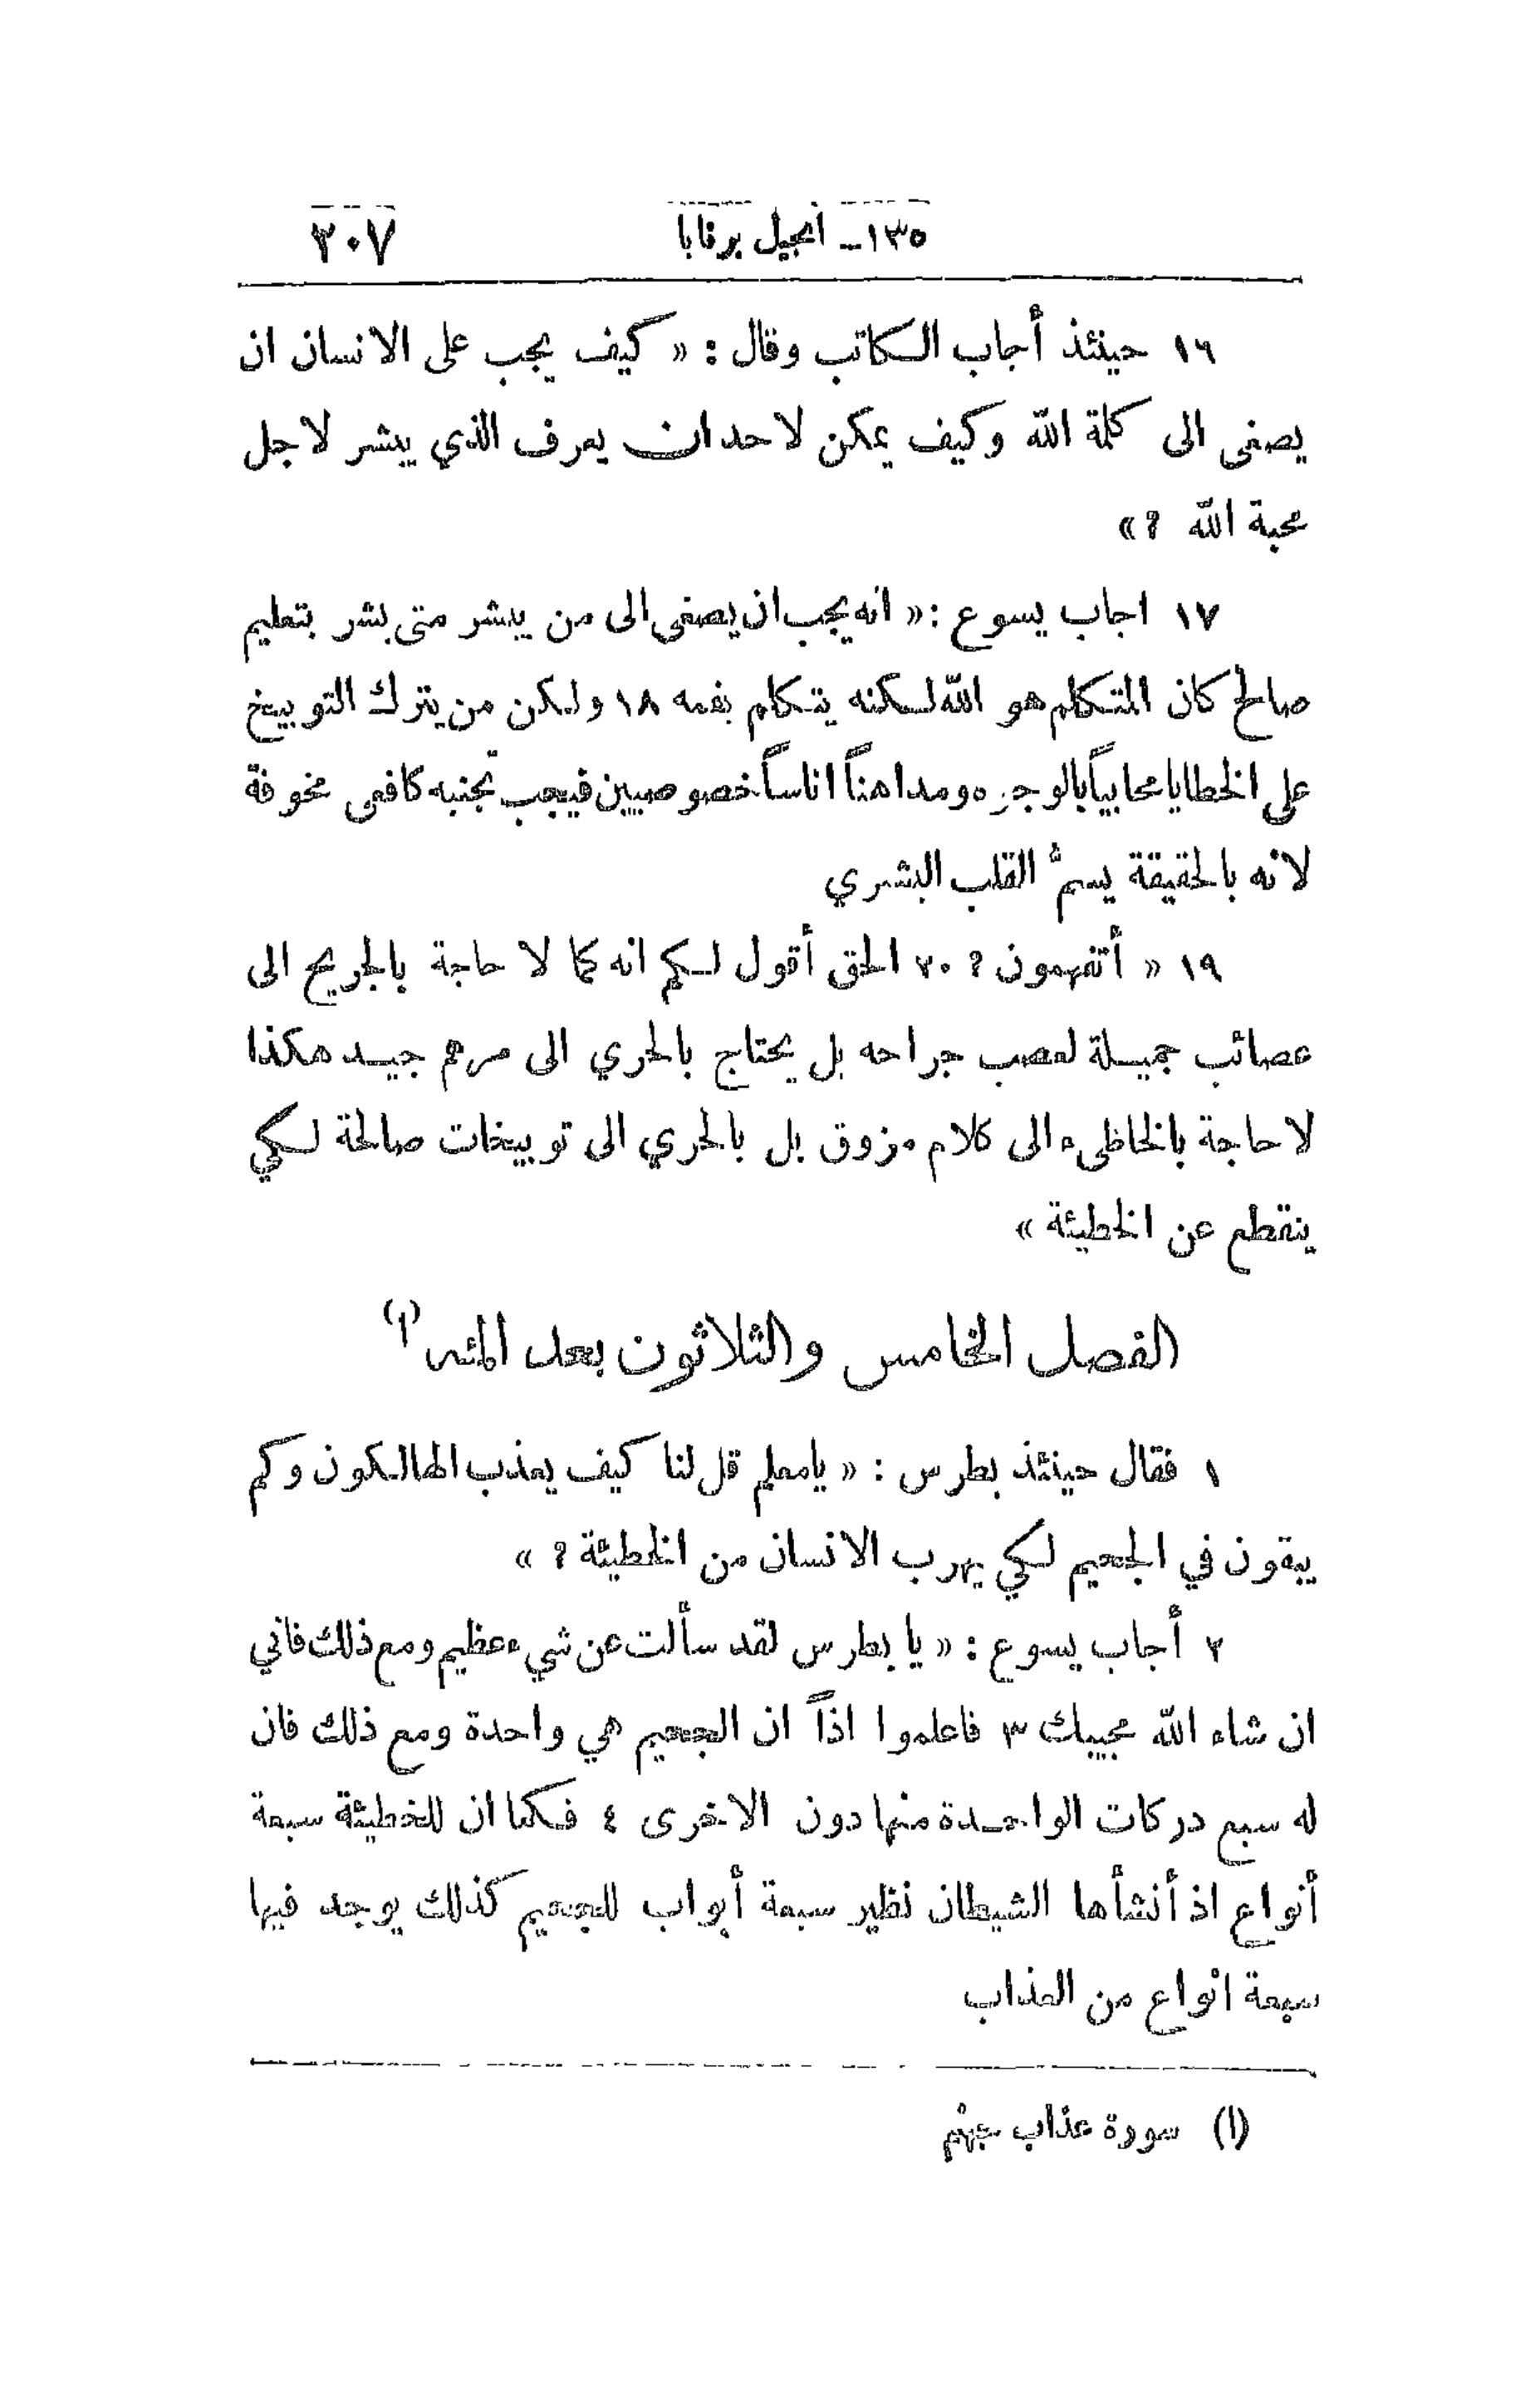 ١٣٥ـ انجيل برنابا ٢٠٧
١٦ حينئذ أجاب الكاتب وقال : « كيف يجب على الانسان ان
يصغى الى كلمة الله وكيف يمكن لاحد ان يعرف الذي يبشر لاجل
محبة الله ؟ »
١٧ اجاب يسوع : « انه يجب ان يصغى الى من يبشر متى بشر بتعليم
صالح كان المتكلم هو الله لكنه يتكلم بفمه ١٨ ولكن من يترك التوبيخ
على الخطايا محابياً بالوجوه ومداهناً اناساً خصوصيين فيجب تجنبه كافعى مخوفة
لانه بالحقيقة يسمُّ القلب البشري
١٩ « أتفهمون ؟ ٢٠ الحق أقول لكم انه كما لا حاجة بالجريح الى
عصائب جميلة لعصب جراحه بل يحتاج بالحري الى مرهم جيد هكذا
لا حاجة بالخاطىء الى كلام مزوق بل بالحري الى توبيخات صالحة لكي
ينقطع عن الخطيئة »
الفصل الخامس والثلاثون بعد المئة (ا)
١ فقال حينئذ بطرس : « يا معلم قل لنا كيف يعذب الهالكون وكم
يبقون في الجحيم لكي يهرب الانسان من الخطيئة ؟ »
٢ أجاب يسوع : « يا بطرس لقد سألت عن شيء عظيم ومع ذلك فاني
ان شاء الله مجيبك ٣ فاعلموا اذاً ان الجحيم هي واحدة ومع ذلك فان
له سبع دركات الواحدة منها دون الاخرى ٤ فكما ان للخطيئة سبعة
أنواع اذ أنشأها الشيطان نظير سبعة أبواب للجحيم كذلك يوجد فيها
سبعة انواع من العذاب
(ا) سورة عذاب جهنم